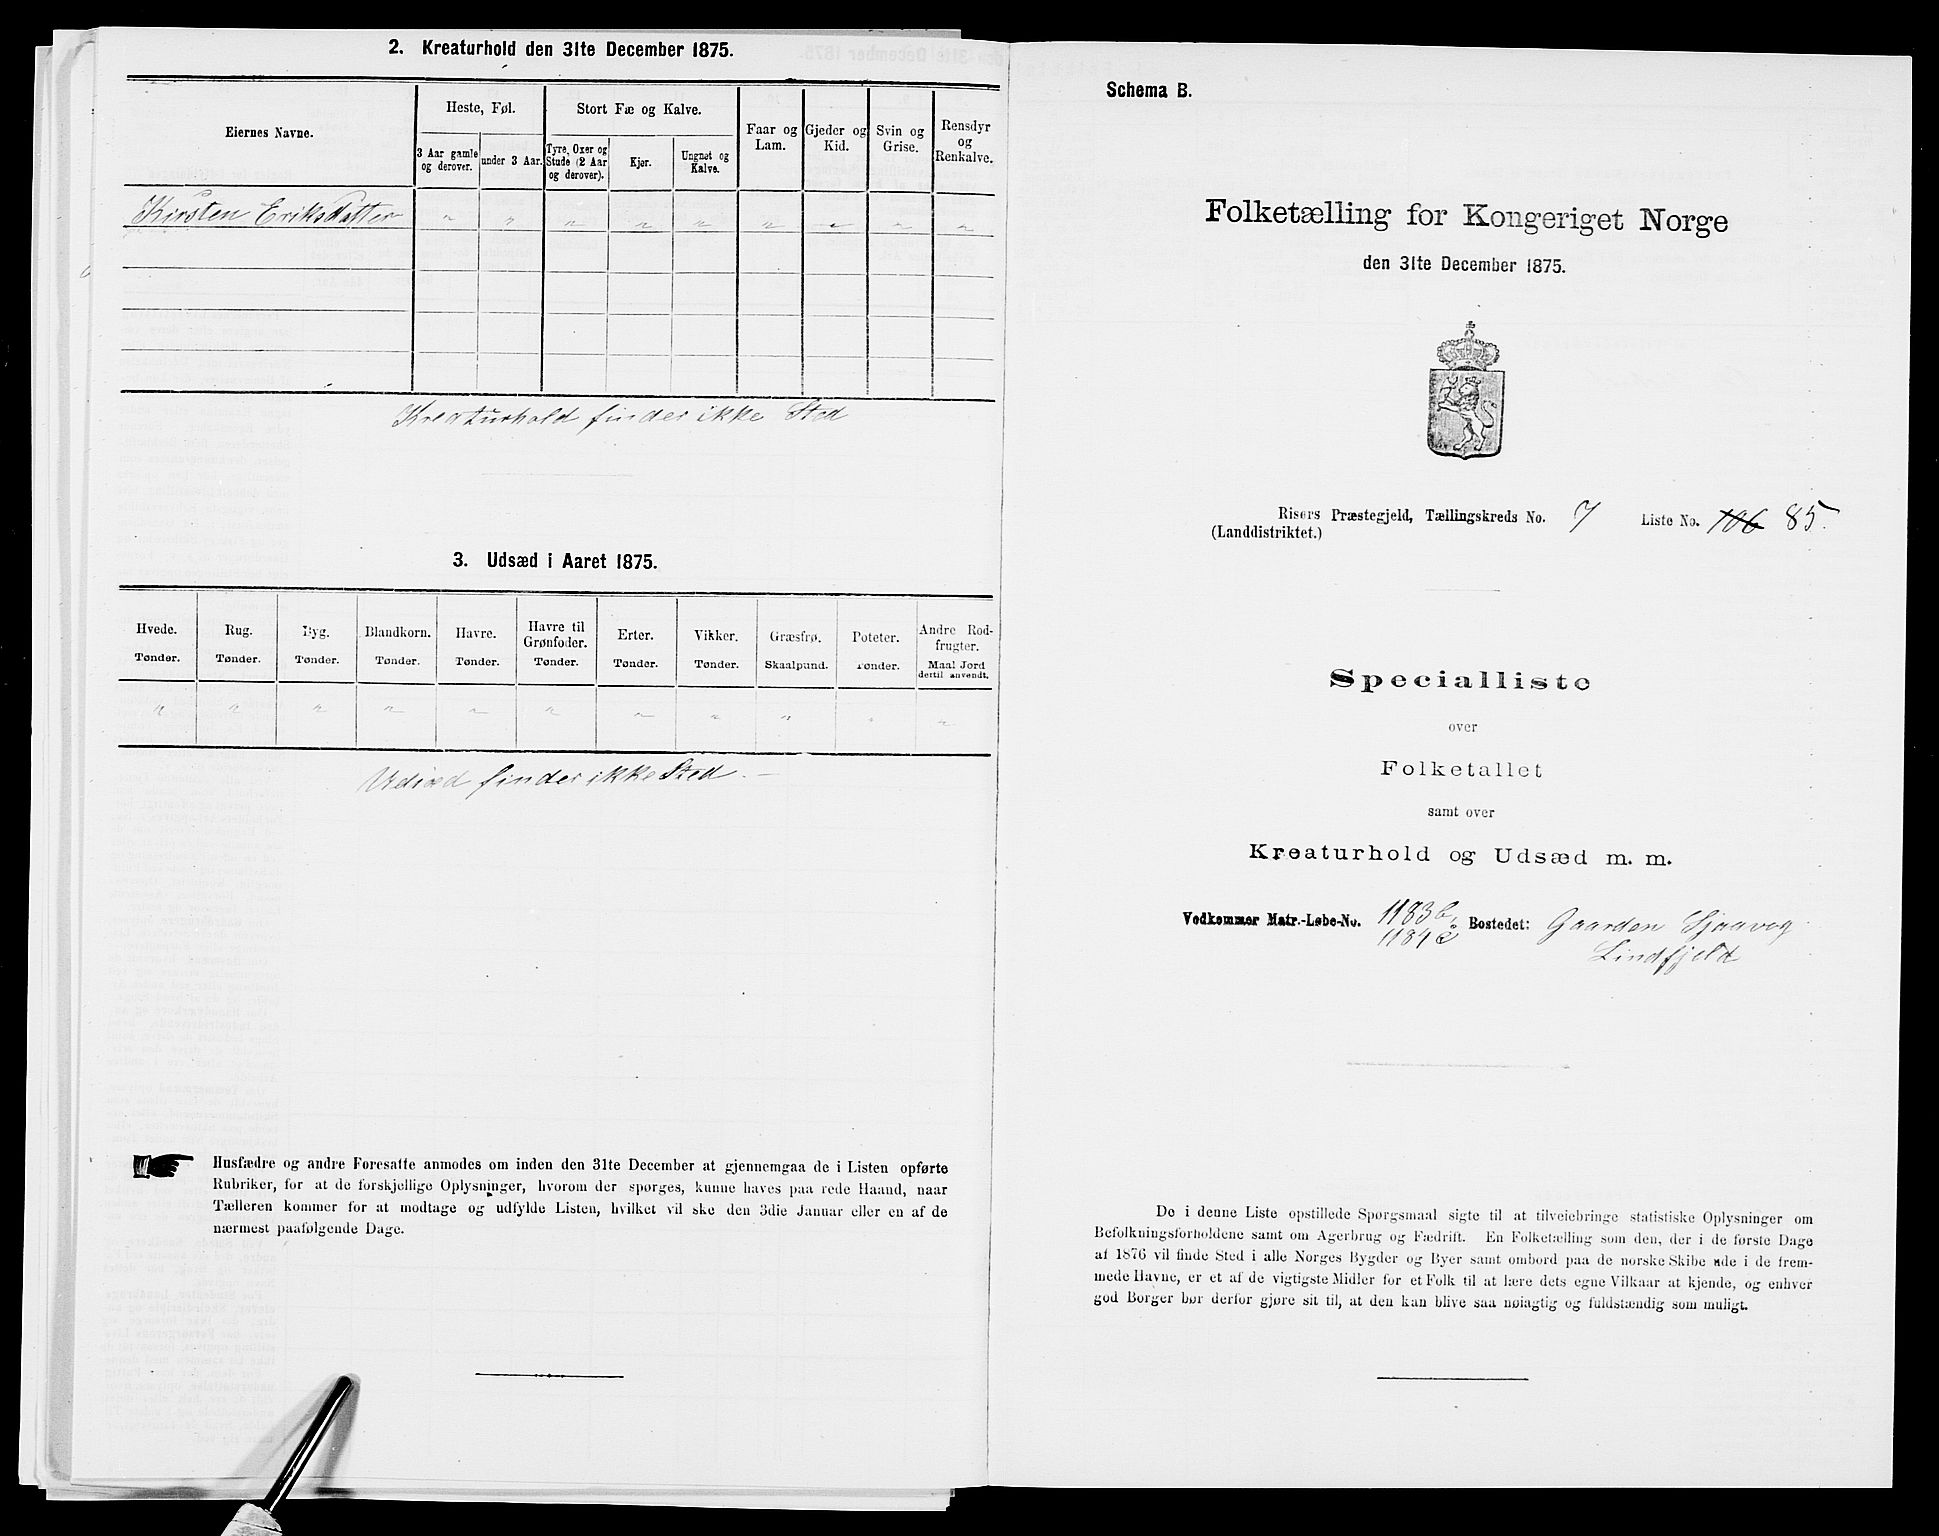 2. Kreaturhold den 31te December 1875.
Eiernes Navne.
Heste, Føl.
Stort Fæ og Kalve.
Faar og Lam.
Gjeder og Kid.
Svin og Grise.
Rensdyr og Renkalve.
3 Aar gamle og derover.
under 3 Aar.
Tyre, Oxer og Stude (2 Aar og derover).
Kjør.
Ungnøt og Kalve.
Kirsten Eriksdatter " " " " " " " " "
Kreaturhold finder ikke Sted
3. Udsæd i Aaret 1875.
Hvede. Rug. Byg. Blandkorn. Havre. Havre til Grønfoder. Erter. Vikker. Græsfrø. Poteter. Andre Rodfrugter.
Tønder. Tønder. Tønder. Tønder. Tønder. Tønder. Tønder. Tønder. Skaalpund. Tønder. Maal Jord dertil anvendt.
" " " " " " " " " " "
Udsæd finder ikke Sted. —
Husfædre og andre Foresatte anmodes om inden den 31te December at gjennemgaa de i Listen opførte
Rubriker, for at de forskjellige Oplysninger, hvorom der spørges, kunne haves paa rede Haand, naar
Tælleren kommer for at modtage og udfylde Listen, hvilket vil ske den 3die Januar eller en af de
nærmest paafølgende Dage.
Schema B.
Folketælling for Kongeriget Norge
den 31te December 1875.
Risørs Præstegjeld, Tællingskreds No. 7 Liste No. 106 85.
(Landdistriktet.)
Specialliste
over
Folketallet
samt over
Kreaturhold og Udsæd m. m.
Vedkommer Matr.-Løbe-No. 1183b, Bostedet: Gaarden Sjaavog
1184c Lindfjeld
De i denne Liste opstillede Spørgsmaal sigte til at tilveiebringe statistiske Oplysninger om
Befolkningsforholdene samt om Agerbrug og Fædrift. En Folketælling som den, der i de første Dage
af 1876 vil finde Sted i alle Norges Bygder og Byer samt ombord paa de norske Skibe ude i de frem-
mede Havne, er et af de vigtigste Midler for et Folk til at lære dets egne Vilkaar at kjende, og enhver
god Borger bør derfor gjøre sit til, at den kan blive saa nøiagtig og fuldstændig som muligt.